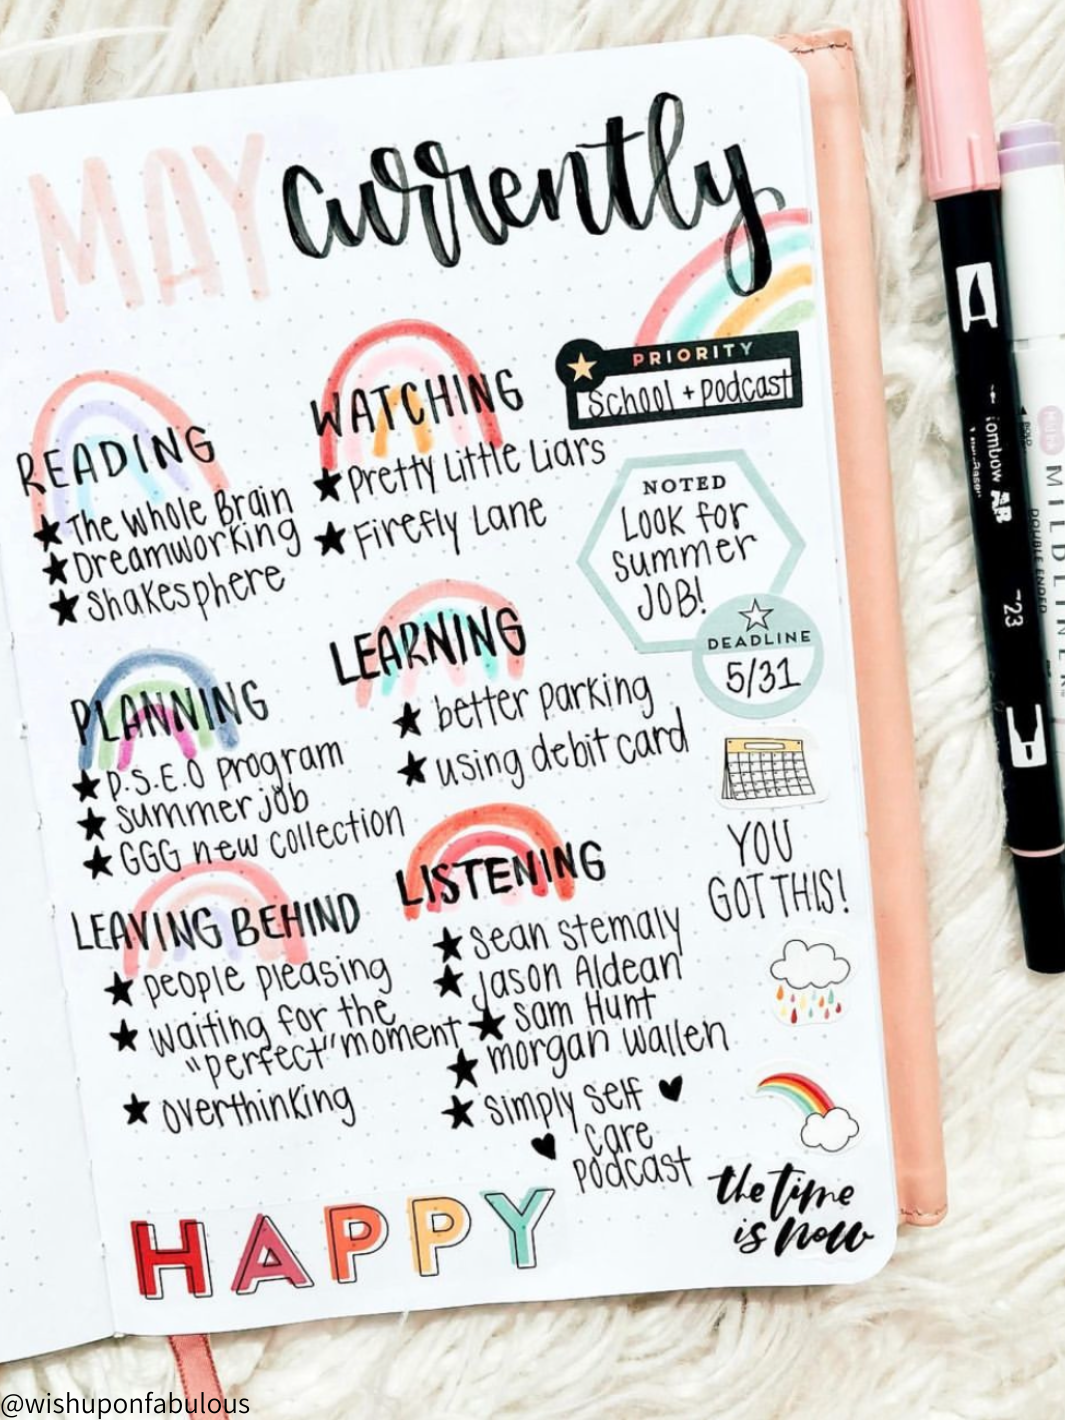 MAY currently
READING
★ The Whole Brain
★ Dreamworking
★ Shakesphere
WATCHING
★ Pretty Little Liars
★ Firefly Lane
PRIORITY
School + podcast
NOTED
Look for
summer
JOB!
DEADLINE
5/31
PLANNING
★ P.S.E.O program
★ summer job
★ GGG new collection
LEARNING
★ better parking
★ using debit card
YOU
GOT THIS!
LEAVING BEHIND
★ people pleasing
★ waiting for the
"perfect" moment
★ overthinking
LISTENING
★ Sean Stemaly
★ Jason Aldean
★ Sam Hunt
★ morgan wallen
★ simply self ♥
♥ care
podcast
the time
is now
HAPPY
Tombow AB
723
MILDLINER
DOUBLE ENDED
@wishuponfabulous